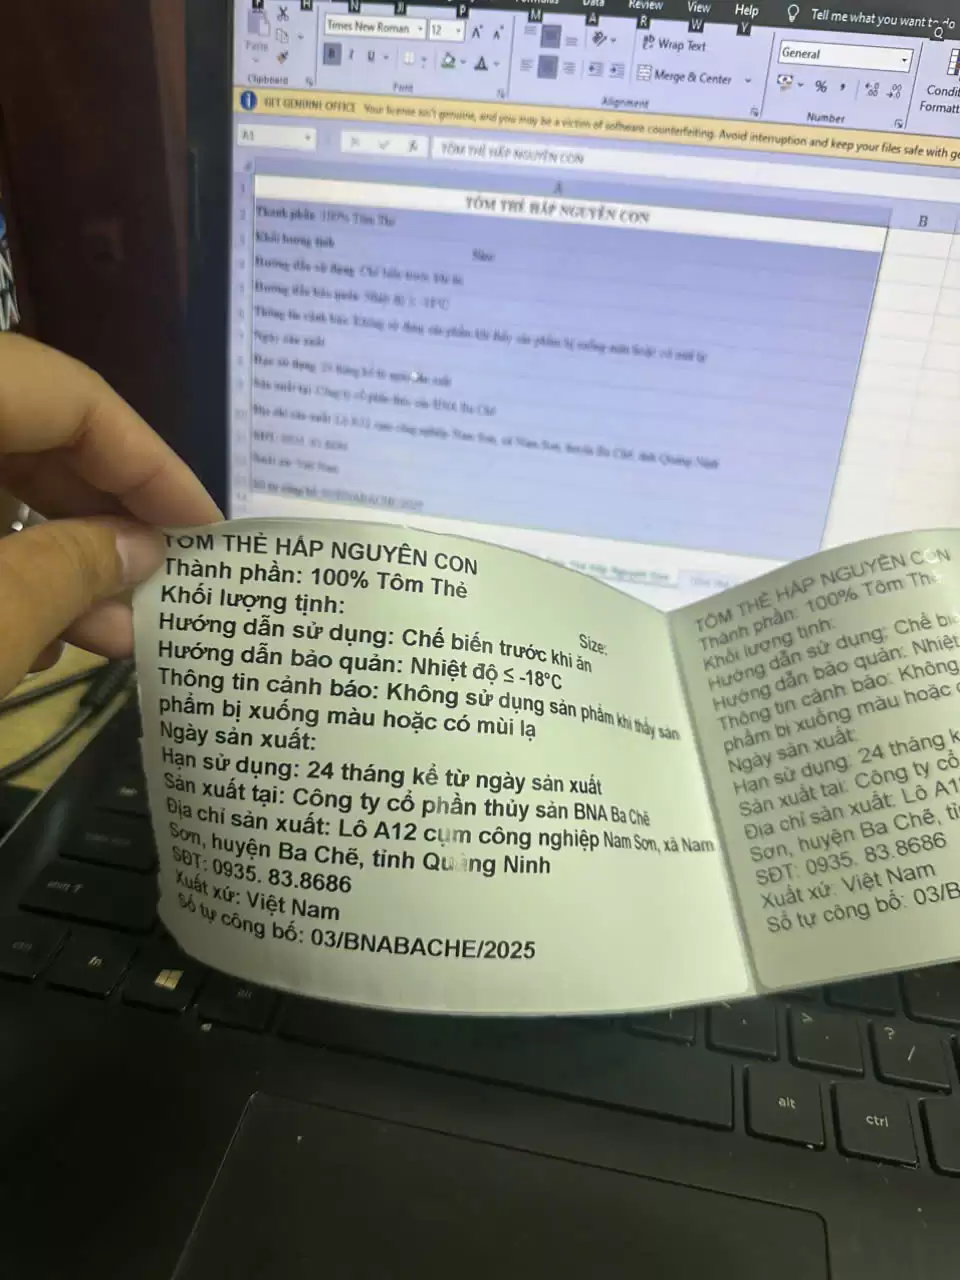 Data
Review
View
Help
Tell me what you want to do
Times New Roman
12
Paste
Clipboard
Font
Wrap Text
Merge & Center
Alignment
General
%
Number
Condit
Formatt
GET GENUINE OFFICE Your license isn't genuine, and you may be a victim of software counterfeiting. Avoid interruption and keep your files safe with ge
A1
TÔM THẺ HẤP NGUYÊN CON
A
B
TÔM THẺ HẤP NGUYÊN CON
Thành phần: 100% Tôm Thẻ
Khối lượng tịnh
Size:
TÔM THẺ HẤP NGUYÊN CON
Thành phần: 100% Tôm Thẻ
Khối lượng tịnh:
Size:
Hướng dẫn sử dụng: Chế biến trước khi ăn
Hướng dẫn bảo quản: Nhiệt độ ≤ -18°C
Thông tin cảnh báo: Không sử dụng sản phẩm khi thấy sản
phẩm bị xuống màu hoặc có mùi lạ
Ngày sản xuất:
Hạn sử dụng: 24 tháng kể từ ngày sản xuất
Sản xuất tại: Công ty cổ phần thủy sản BNA Ba Chẽ
Địa chỉ sản xuất: Lô A12 cụm công nghiệp Nam Sơn, xã Nam
Sơn, huyện Ba Chẽ, tỉnh Quảng Ninh
SĐT: 0935. 83.8686
Xuất xứ: Việt Nam
Số tự công bố: 03/BNABACHE/2025
TÔM THẺ HẤP NGUYÊN CON
Thành phần: 100% Tôm Thẻ
Khối lượng tịnh:
Hướng dẫn sử dụng: Chế biế
Hướng dẫn bảo quản: Nhiệt
Thông tin cảnh báo: Không
phẩm bị xuống màu hoặc c
Ngày sản xuất:
Hạn sử dụng: 24 tháng k
Sản xuất tại: Công ty cổ
Địa chỉ sản xuất: Lô A1
Sơn, huyện Ba Chẽ, tỉ
SĐT: 0935. 83.8686
Xuất xứ: Việt Nam
Số tự công bố: 03/B
fn
alt
alt
ctrl
>
?
/